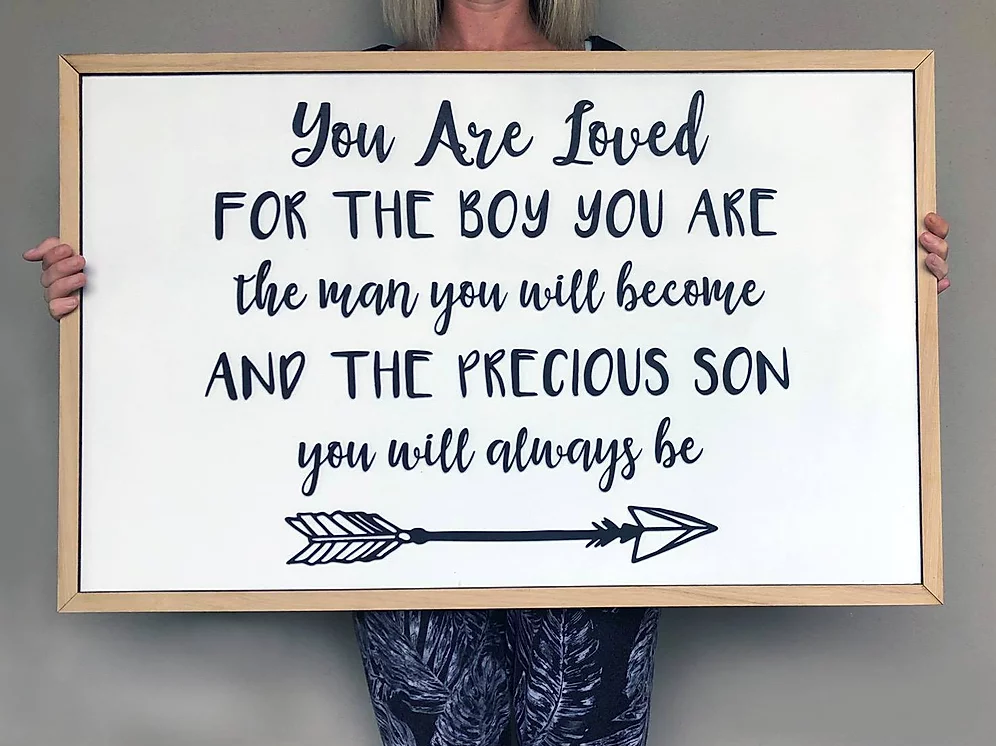 You Are Loved
FOR THE BOY YOU ARE
the man you will become
AND THE PRECIOUS SON
you will always be